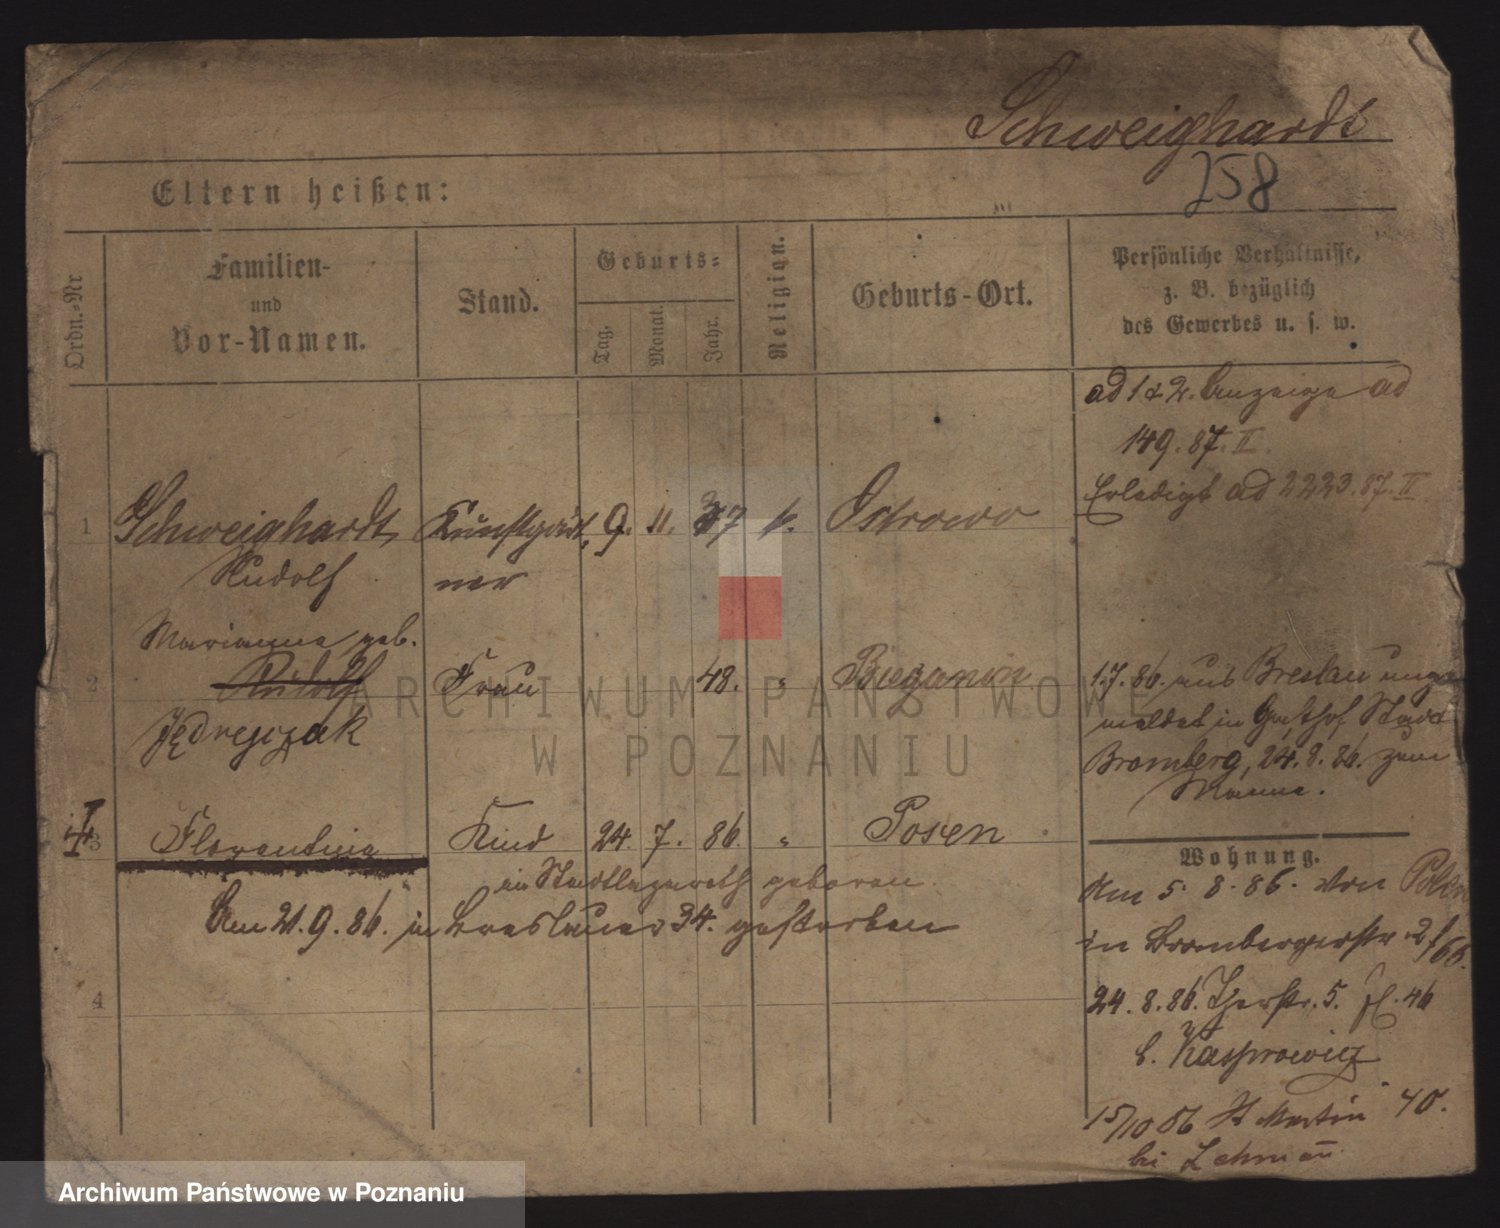 Schweighardt
258
Eltern heißen:
Ordn.-Nr
Familien-
und
Vor-Namen.
Stand.
Geburts-
Tag.
Monat.
Jahr.
Religion.
Geburts-Ort.
Persönliche Verhältnisse,
z. B. bezüglich
des Gewerbes u. s. w.
ad 1 & 2. Anzeige ad
149. 87. II.
Erledigt ad 2223. 87. II
1 Schweighardt, Kunstgärt, 9. 11. 37 k. Ostrowo
Rudolf ner
Marianna geb.
2 Rudolf Frau 48. "
Jędrejczak
1.7.86. aus Breslau ange
meldet in Gasthof Stadt
Bromberg, 24.8.86. zum
Manne.
3 Florentina Kind 24. 7. 86. " Posen
im Stadtlazareth geboren.
Am 21.9.86. in Breslauer 34. gestorben
4
Wohnung.
Am 5. 8. 86. von Polen
in Brombergerstr. 2/66.
24. 8. 86. 5. 46
b. Kasprowicz
15/10 86 St Martin 40.
bei Lehmann
ARCHIWUM PAŃSTWOWE
W POZNANIU
Archiwum Państwowe w Poznaniu